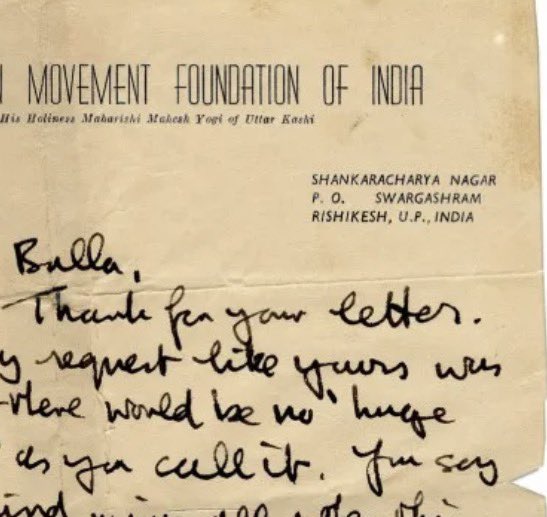 MOVEMENT FOUNDATION OF INDIA
His Holiness Maharishi Mahesh Yogi of Uttar Kashi
SHANKARACHARYA NAGAR
P. O. SWARGASHRAM
RISHIKESH, U.P., INDIA
Bulla,
Thank for your letter.
y request like yours was
there would be no ' huge
as you call it. You say